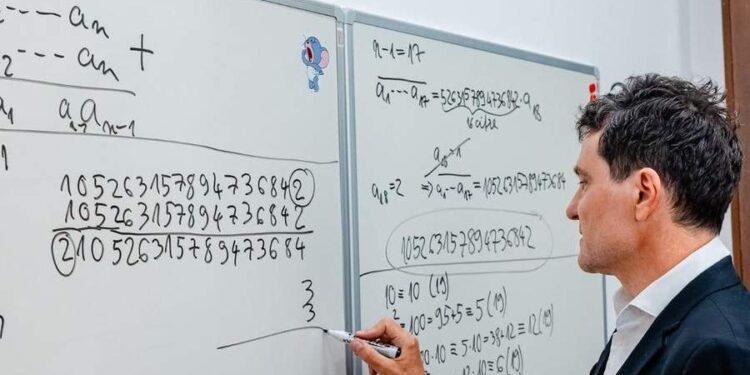 ··· aₙ
₂ ··· aₙ +
a₁ aₙaₙ₋₁
105263157894736842
105263157894736842
210526315789473684
3
3
n-1=17
a₁ ··· a₁₇ = 5263157894736842·a₁₈
16 cifre
a₁₈=1
a₁₈=2 ⇒ a₁···a₁₇=10526315789473684
105263157894736842
10≡10 (19)
10²=100=95+5≡5 (19)
100·10≡5·10=38+12≡12 (19)
12·10≡6 (19)